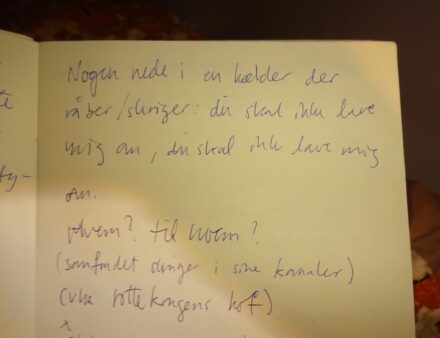 te
ty-
Nogen nede i en kælder der
råber/skriger: du skal ikke lave
mig om, du skal ikke lave mig
om.
Hvem? til hvem?
(samfundet skriger i sine kanaler)
(vha rottekongens hof)